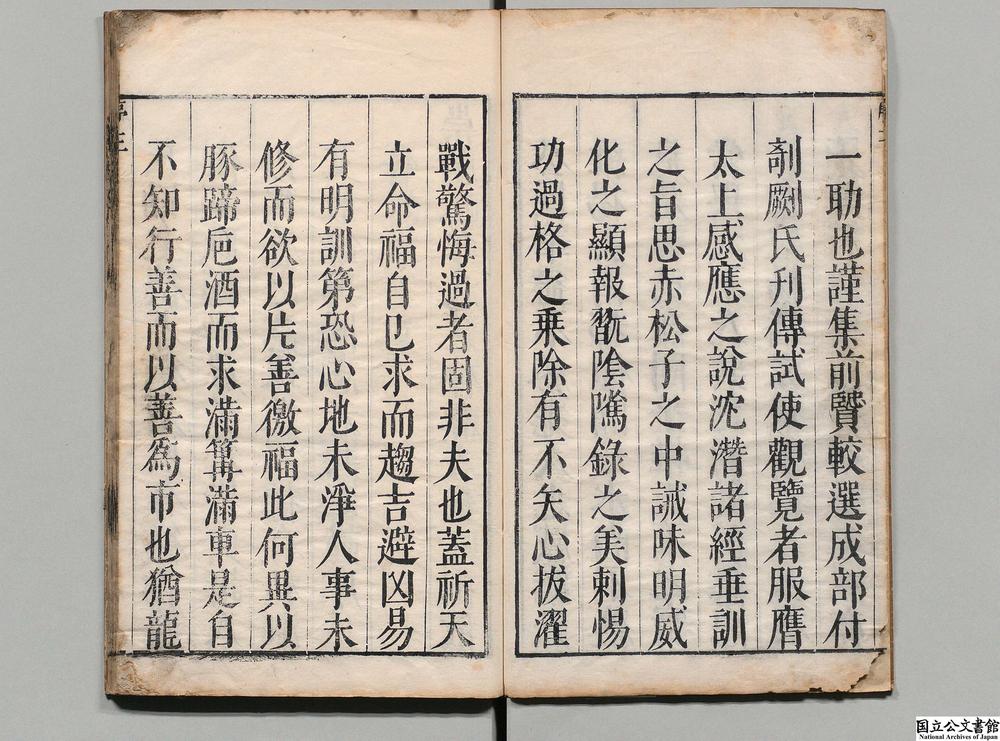 一助也謹集前賢較選成部付
剞劂氏刋傳試使觀覽者服膺
太上感應之說沈潛諸經垂訓
之旨思赤松子之中誡味明威
化之顯報翫陰隲錄之美刺惕
功過格之乗除有不矢心拔濯
戰驚悔過者固非夫也蓋祈天
立命福自已求而趨吉避凶易
有明訓第恐心地未淨人事未
修而欲以片善徼福此何異以
豚蹄巵酒而求滿篝滿車是自
不知行善而以善爲市也猶龍
国立公文書館
National Archives of Japan